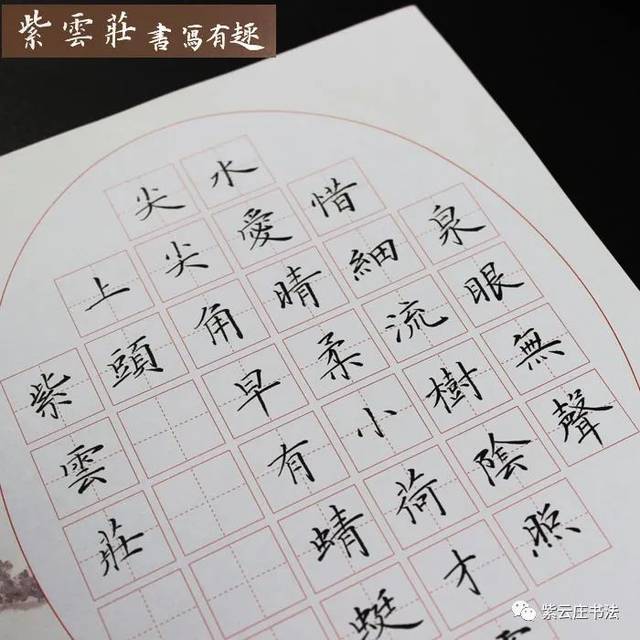 紫雲莊 書寫有趣
泉眼無聲
惜細流樹陰照
水愛晴柔小荷才
尖尖角早有蜻蜓
上頭
紫雲莊
紫云庄书法